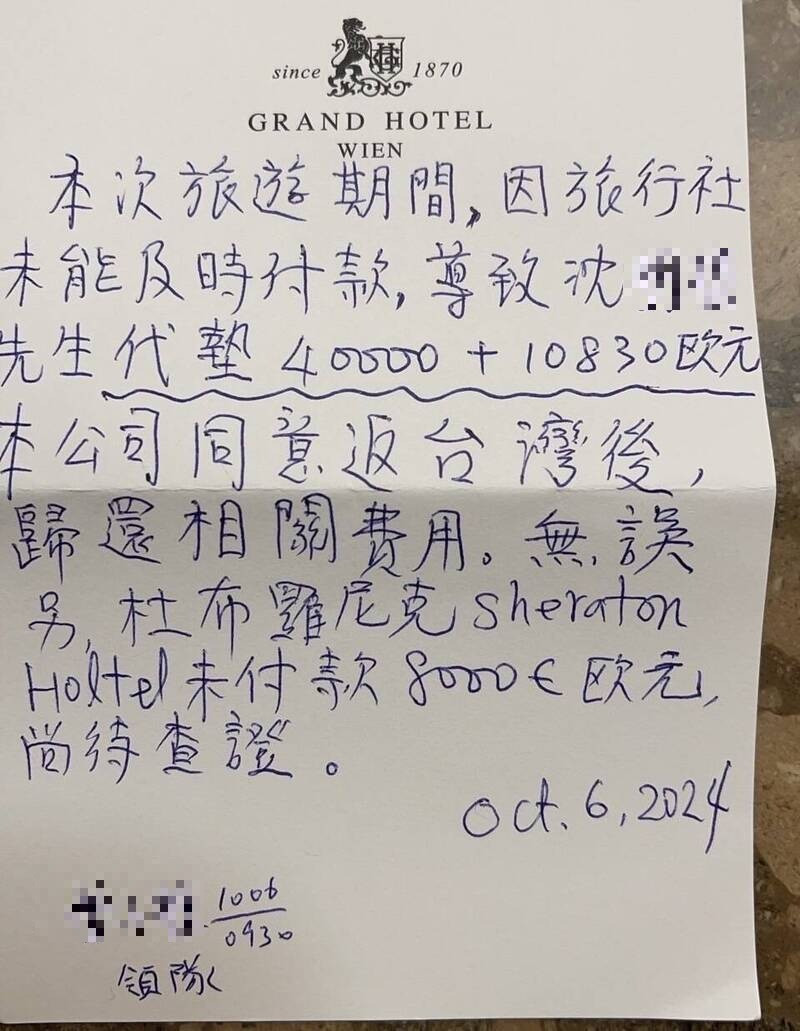 since 1870
GRAND HOTEL
WIEN
本次旅遊期間,因旅行社
未能及時付款,導致沈
先生代墊40000+10830欧元
本公司同意返台灣後,
歸還相關費用。無誤
另,杜布羅尼克sheraton
Holtel未付款8000€欧元,
尚待查證。
Oct. 6, 2024
1006
0930
領隊